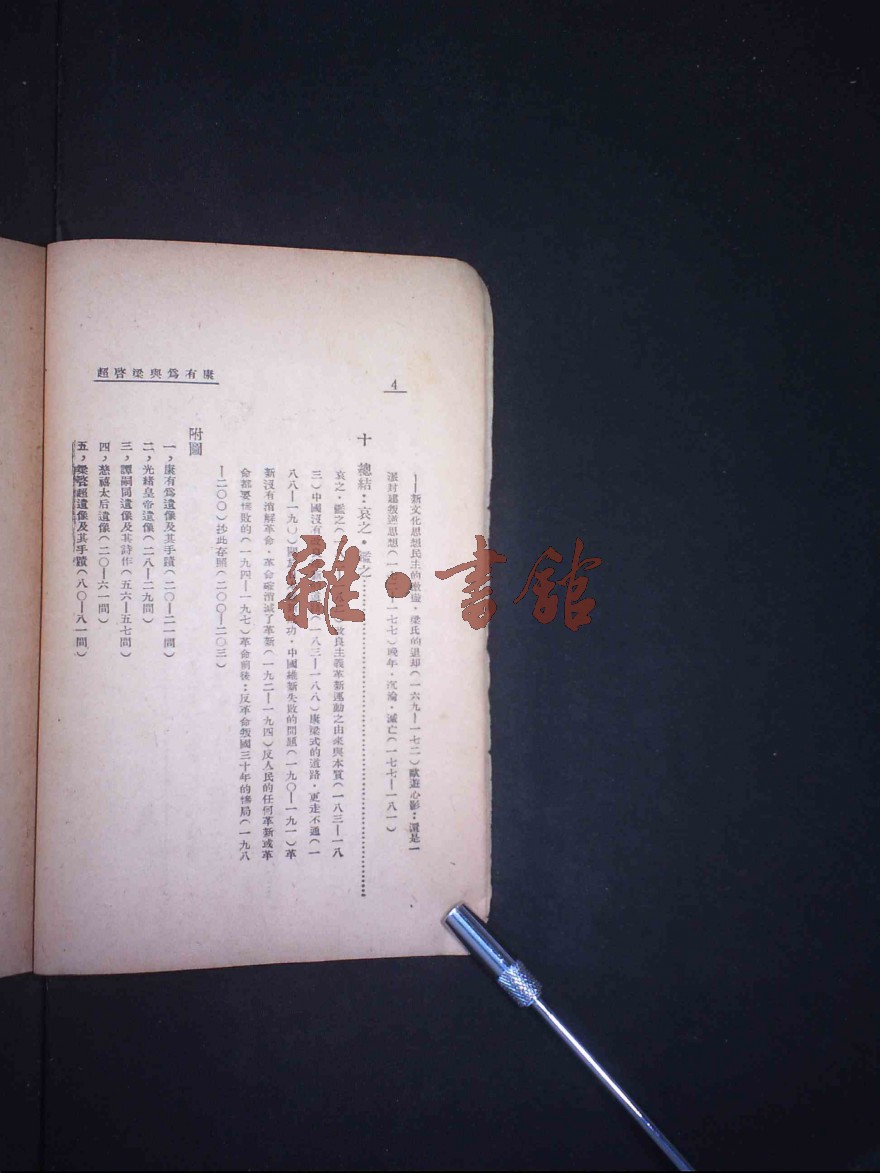 4
康有爲與梁啓超
——新文化思想民主的・梁氏的退却(一六九—一七二)歐遊心影:還是一
封建叛逆思想(一七七)晚年・沉淪・滅亡(一七七—一八一)
十 總結:哀之・鑑之
哀之・鑑之(改良主義革新運動之由來與本質(一八三—一八
三)中國沒有(一八三—一八八)康梁式的道路・更走不通(一
八八—一九〇)功・中國維新失敗的問題(一九〇—一九一)革
新沒有消解革命・革命確消滅了革新(一九二—一九四)反人民的任何革新或革
命都要慘敗的(一九四—一九七)革命前後:反革命叛國三十年的慘局(一九八
—二〇〇)抄此存照(二〇〇—二〇三)
附圖
一,康有爲遺像及其手蹟(二〇—二一間)
二,光緒皇帝遺像(二八—二九間)
三,譚嗣同遺像及其詩作(五六—五七間)
四,慈禧太后遺像(六〇—六一間)
五,梁啓超遺像及其手蹟(八〇—八一間)
雜・書館